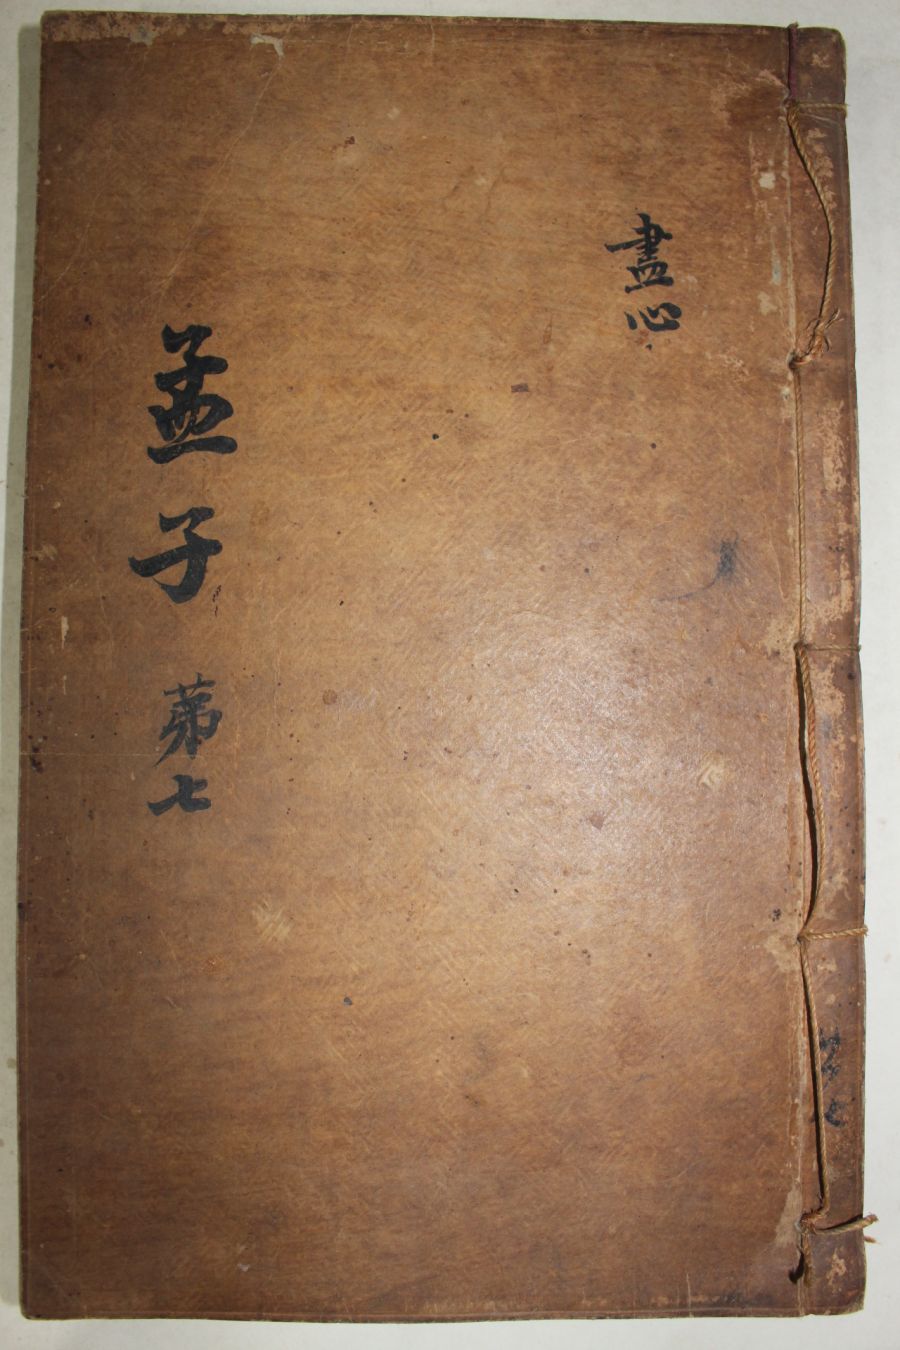 盡心
孟子 苐七